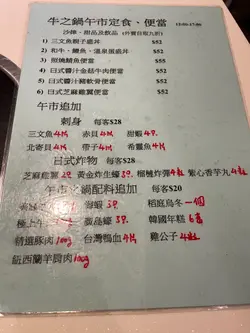 牛之鍋午市定食、便當 12:00-17:00
沙律、甜品及飲品
1) 三文魚親子定丼 $52
2) 和牛、鰻魚、溫泉蛋盛丼 $52
3) 照燒鯖魚便當 $52
4) 日式醬汁金菇牛肉便當 $52
5) 日式醬汁豬軟骨便當 $52
6) 日式芝麻雞翼便當 $52
午市追加
刺身 每客$28
三文魚4片 赤貝4片 甜蝦4隻
北寄貝4片 帶子4片 希靈魚4片
日式炸物 每客$28
芝麻雞翼 黃金炸生蠔3隻 榴槤炸彈4粒 紫心香芋丸4粒
午市之鍋配料追加 每客$20
海蝦3隻 稻庭烏冬一個
極上牛 3隻 韓國年糕6條
精選豚肉100g 台灣鴨血4片 雞公子4粒
紐西蘭羊肩肉100g